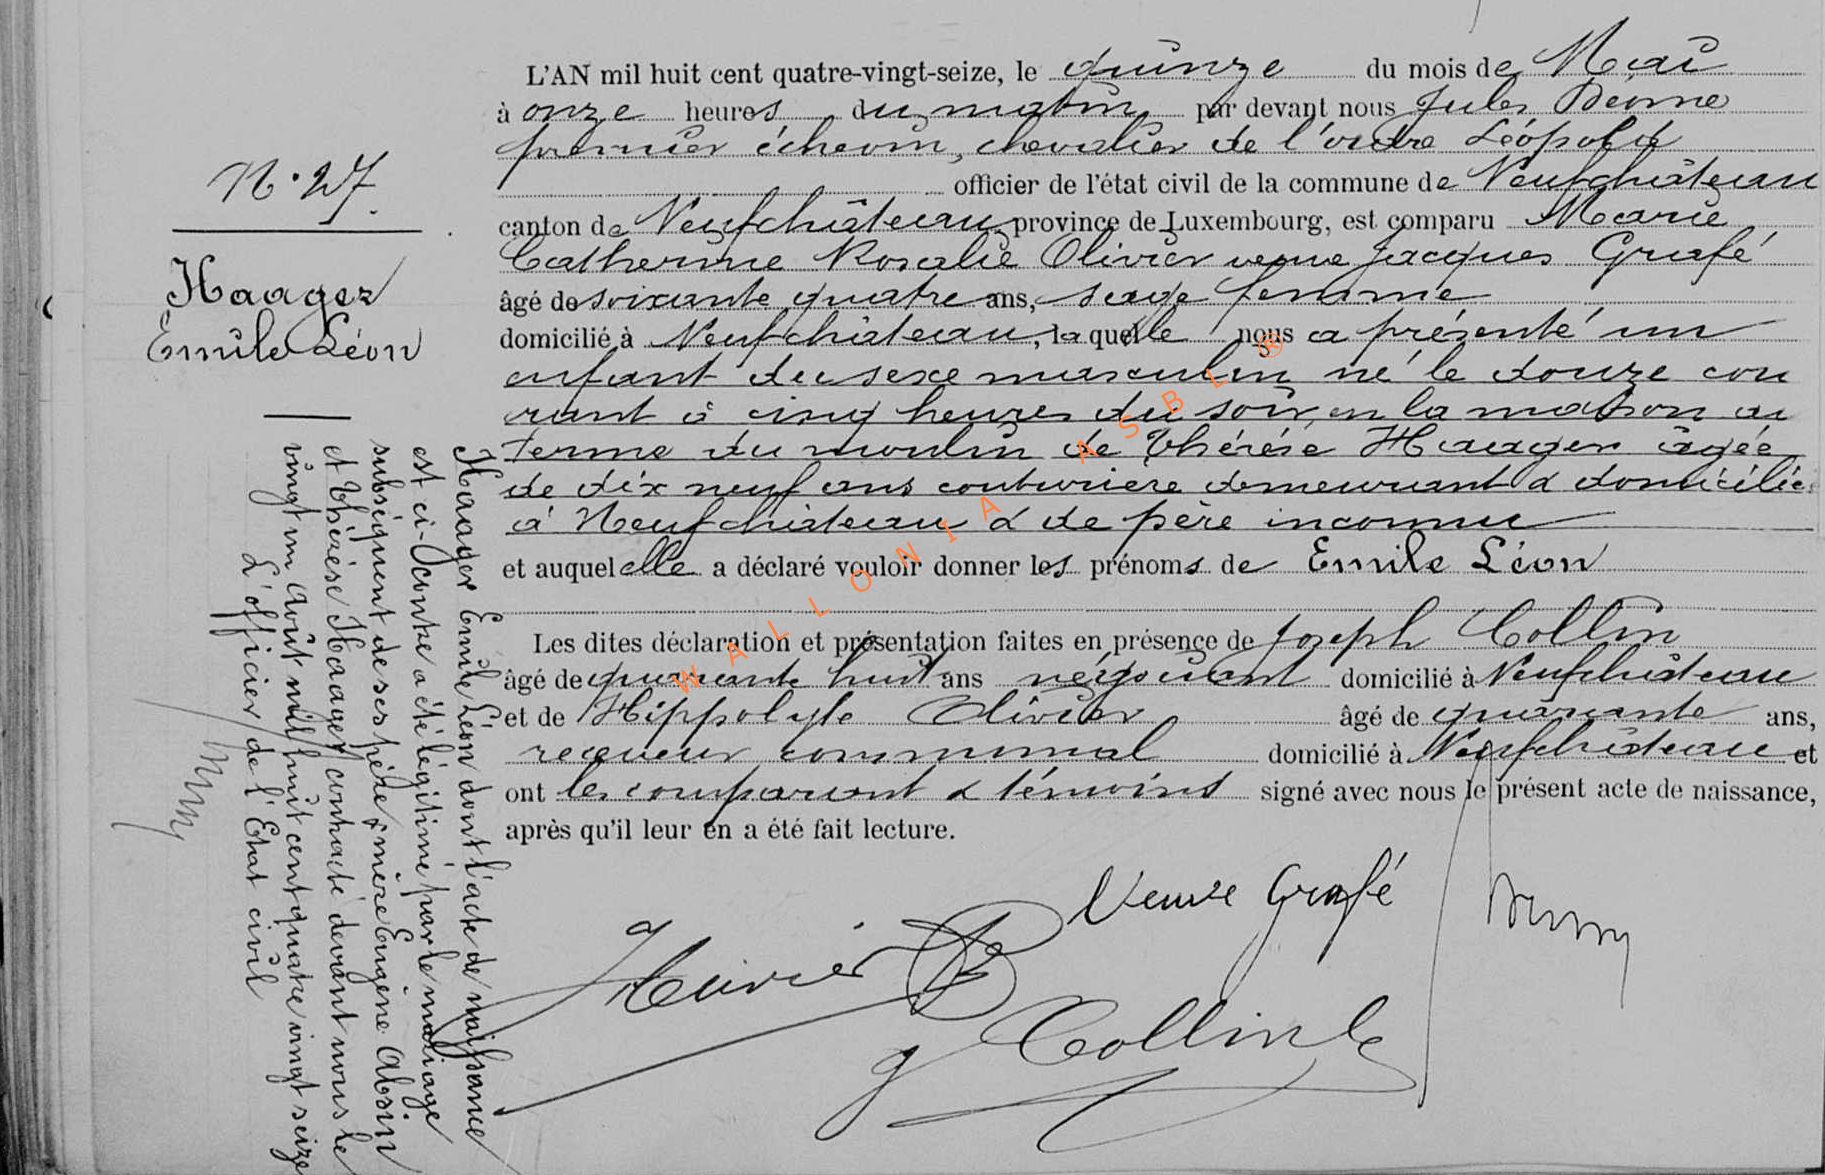 N. 27.
Haager
Émile Léon
L'AN mil huit cent quatre-vingt-seize, le quinze du mois de Mai
à onze heures du matin par devant nous Jules
premier échevin, chevalier de l'ordre Léopold
officier de l'état civil de la commune de Neufchâteau
canton de Neufchâteau, province de Luxembourg, est comparu Marie
Catherine Rosalie Olivier veuve Jacques Grafé
âgé de soixante quatre ans, sage femme
domicilié à Neufchâteau, laquelle nous a présenté un
enfant du sexe masculin né le douze cou
rant à cinq heures du soir en la maison au
terme du moulin de Thérèse Haager âgée
de dix neuf ans couturière demeurant & domiciliée
à Neufchâteau & de père inconnu
et auquel elle a déclaré vouloir donner les prénoms de Emile Léon
Les dites déclaration et présentation faites en présence de Joseph Collin
âgé de quarante huit ans négociant domicilié à Neufchâteau
et de Hippolyte Olivier âgé de quarante ans,
receveur communal domicilié à Neufchâteau et
ont les comparant & témoins signé avec nous le présent acte de naissance,
après qu'il leur en a été fait lecture.
Veuve Grafé
Olivier
J Collin
Haager Emile Léon dont l'acte de naissance
est ci-contre a été légitimé par le mariage
subséquent de ses père & mère Eugène Absin
et Thérèse Haager contracté devant nous le
vingt un Août mil huit cent quatre vingt seize
L'officier de l'Etat civil
WALLONIA ASBL ®